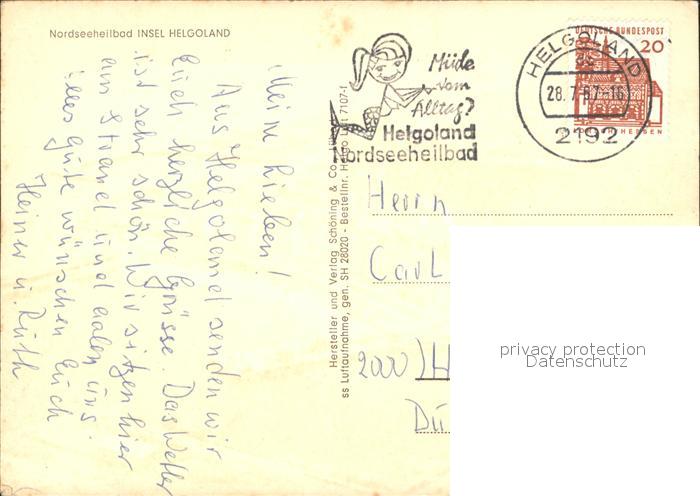 Nordseeheilbad INSEL HELGOLAND
Meine Lieben!
Aus Helgoland senden wir
Euch herzliche Grüsse. Das Wetter
ist sehr schön. Wir sitzen hier
am Strand und aalen uns.
alles Gute wünschen Euch
Heiner u. Ruth
Hersteller und Verlag Schöning & Co
ss Luftaufnahme, gen. SH 28020 - Bestellnr. Helgo L 7107-f
Müde
vom
Alltag?
Helgoland
Nordseeheilbad
HELGOLAND
28.7.67-16
2192
DEUTSCHE BUNDESPOST
20
HESSEN
Herrn
Carl
2000 H
Dü
privacy protection
Datenschutz